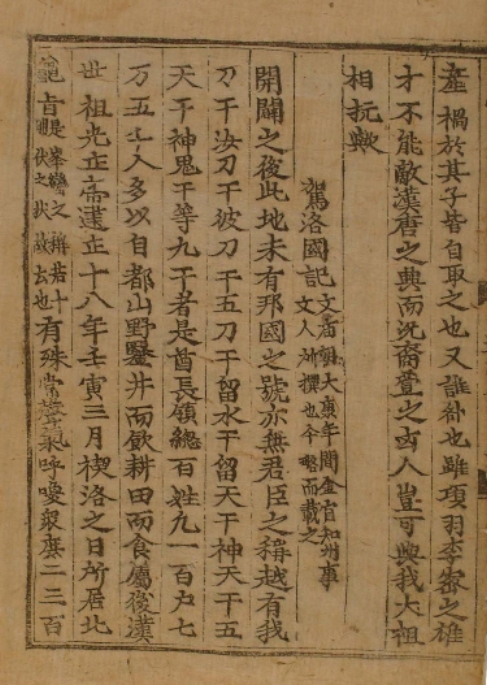 産禍於其子皆自取之也又誰咎也雖項羽李密之雄
才不能敵漢唐之興而況裔萱之凶人豈可與我大祖
相抗歟
駕洛國記文庙朝大康年間金官知州事
文人所撰也今略而載之
開闢之後此地未有邦國之號亦無君臣之稱越有我
刀干汝刀干彼刀干五刀干留水干留天干神天干五
天干神鬼干等九干者是酋長領總百姓九一百户七
万五千人多以自都山野鑿井而飲耕田而食屬後漢
世祖光正帝建正十八年壬寅三月禊洛之日所居北
龜旨是峯巒之稱若十
朋伏之状故云也有殊常聲氣呼喚衆庶二三百